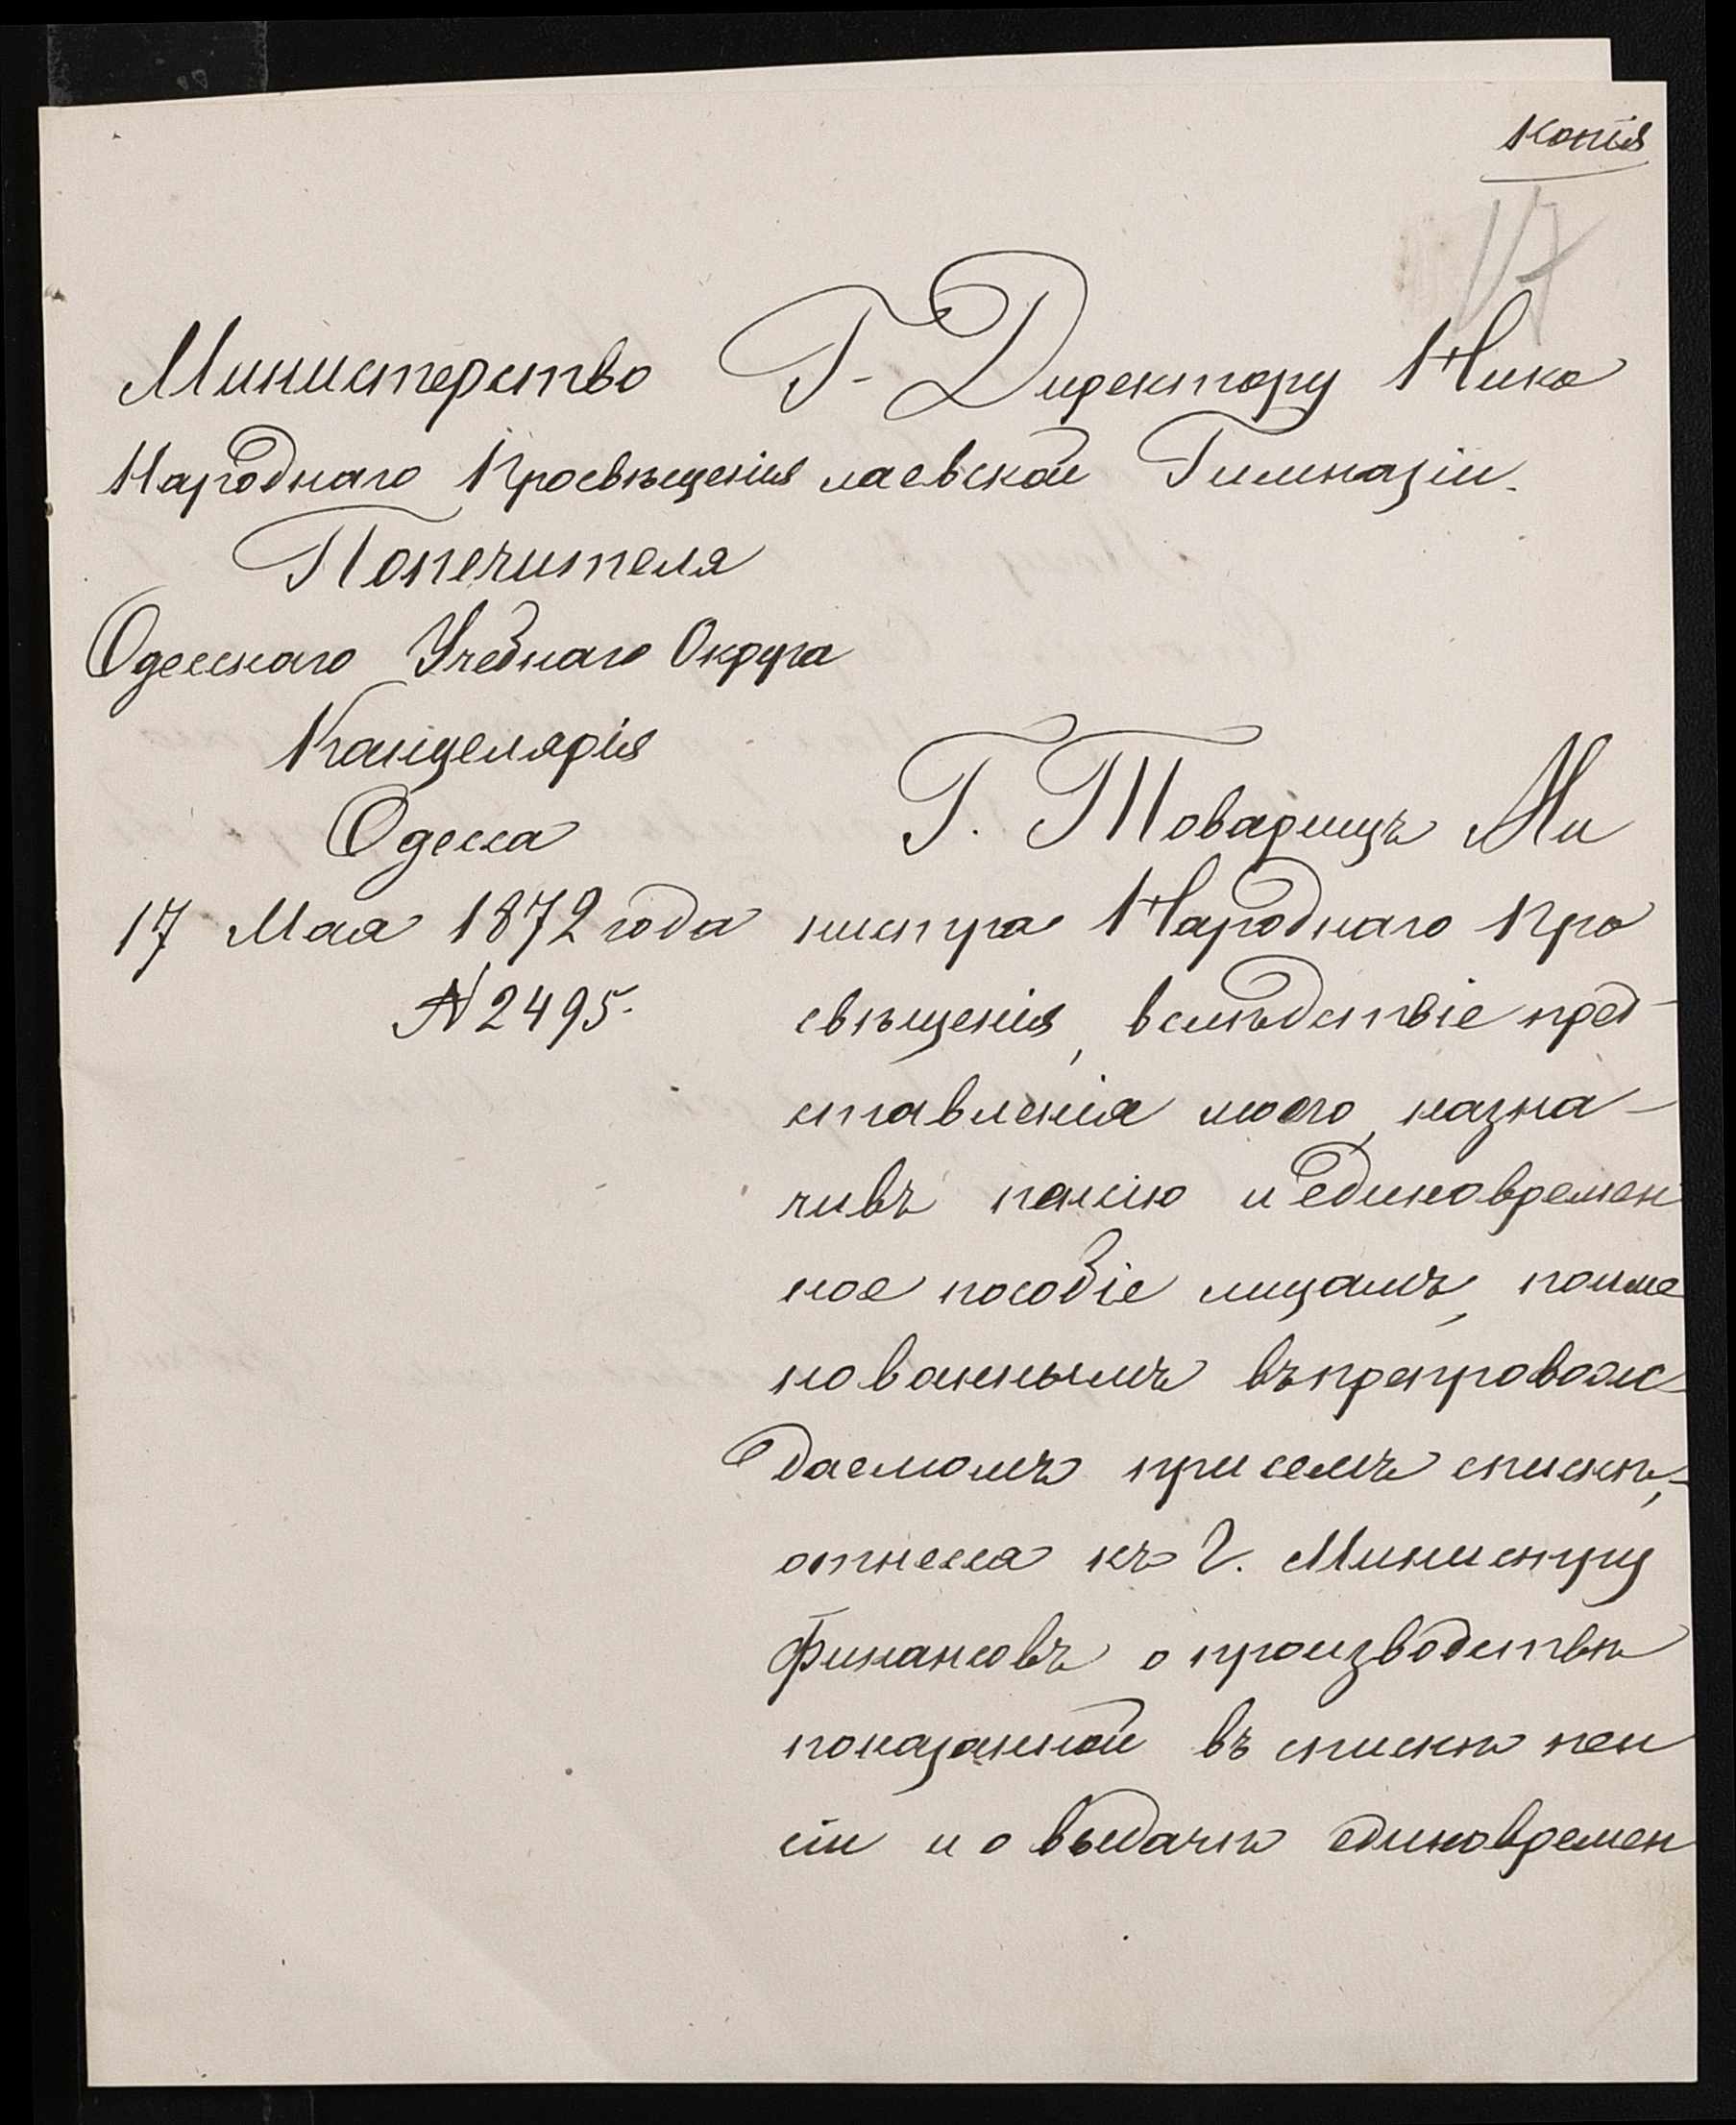 Копія
17
Министерство
Народнаго Просвѣщенія
Попечителя
Одесскаго Учебнаго Округа
Канцелярія
Одесса
17 Мая 1872 года
№ 2495.
Г. Директору Нико
лаевской Гимназіи.
Г. Товарищъ Ми
нистра Народнаго Про
свѣщенія, вслѣдствіе пред-
ставленія моего, назна-
чивъ пенсію и единовремен
ное пособіе лицамъ, поиме
нованнымъ въ препровож-
даемомъ при семъ спискѣ,-
отнесся къ Г. Министру
Финансовъ о производствѣ
показанной въ спискѣ пен
сіи и о выдачѣ единовремен